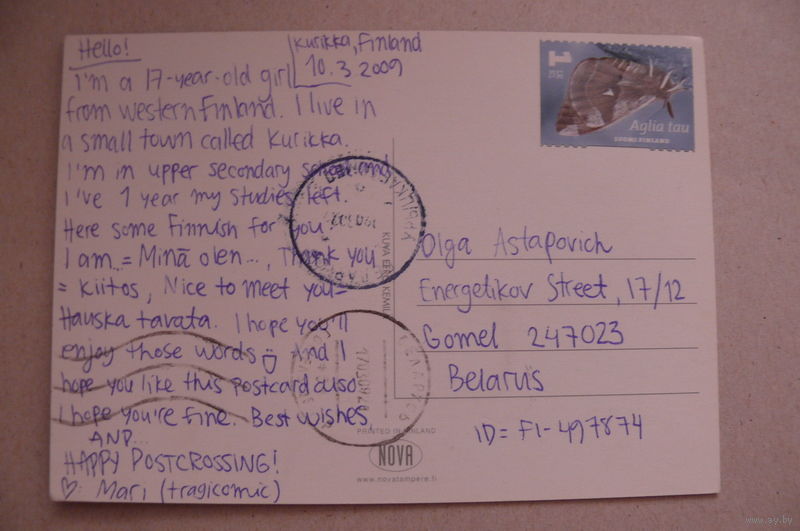 Hello!
Kurikka, Finland
10.3.2009
I'm a 17-year-old girl
from western Finland. I live in
a small town called Kurikka.
I'm in upper secondary school and
I've 1 year my studies left.
Here some Finnish for you
I am..= Minä olen..., Thank you
= Kiitos, Nice to meet you=
Hauska tavata. I hope you'll
enjoy those words And I
hope you like this postcard also
I hope you're fine. Best wishes,
AND...
HAPPY POSTCROSSING!
♡ Mari (tragicomic)
1
Aglia tau
SUOMI FINLAND
Olga Astapovich
Energetikov Street, 17/12
Gomel 247023
Belarus
ID= FI-497874
KUVA EERO KEMILÄ
PRINTED IN FINLAND
NOVA
www.novatampere.fi
www.ay.by